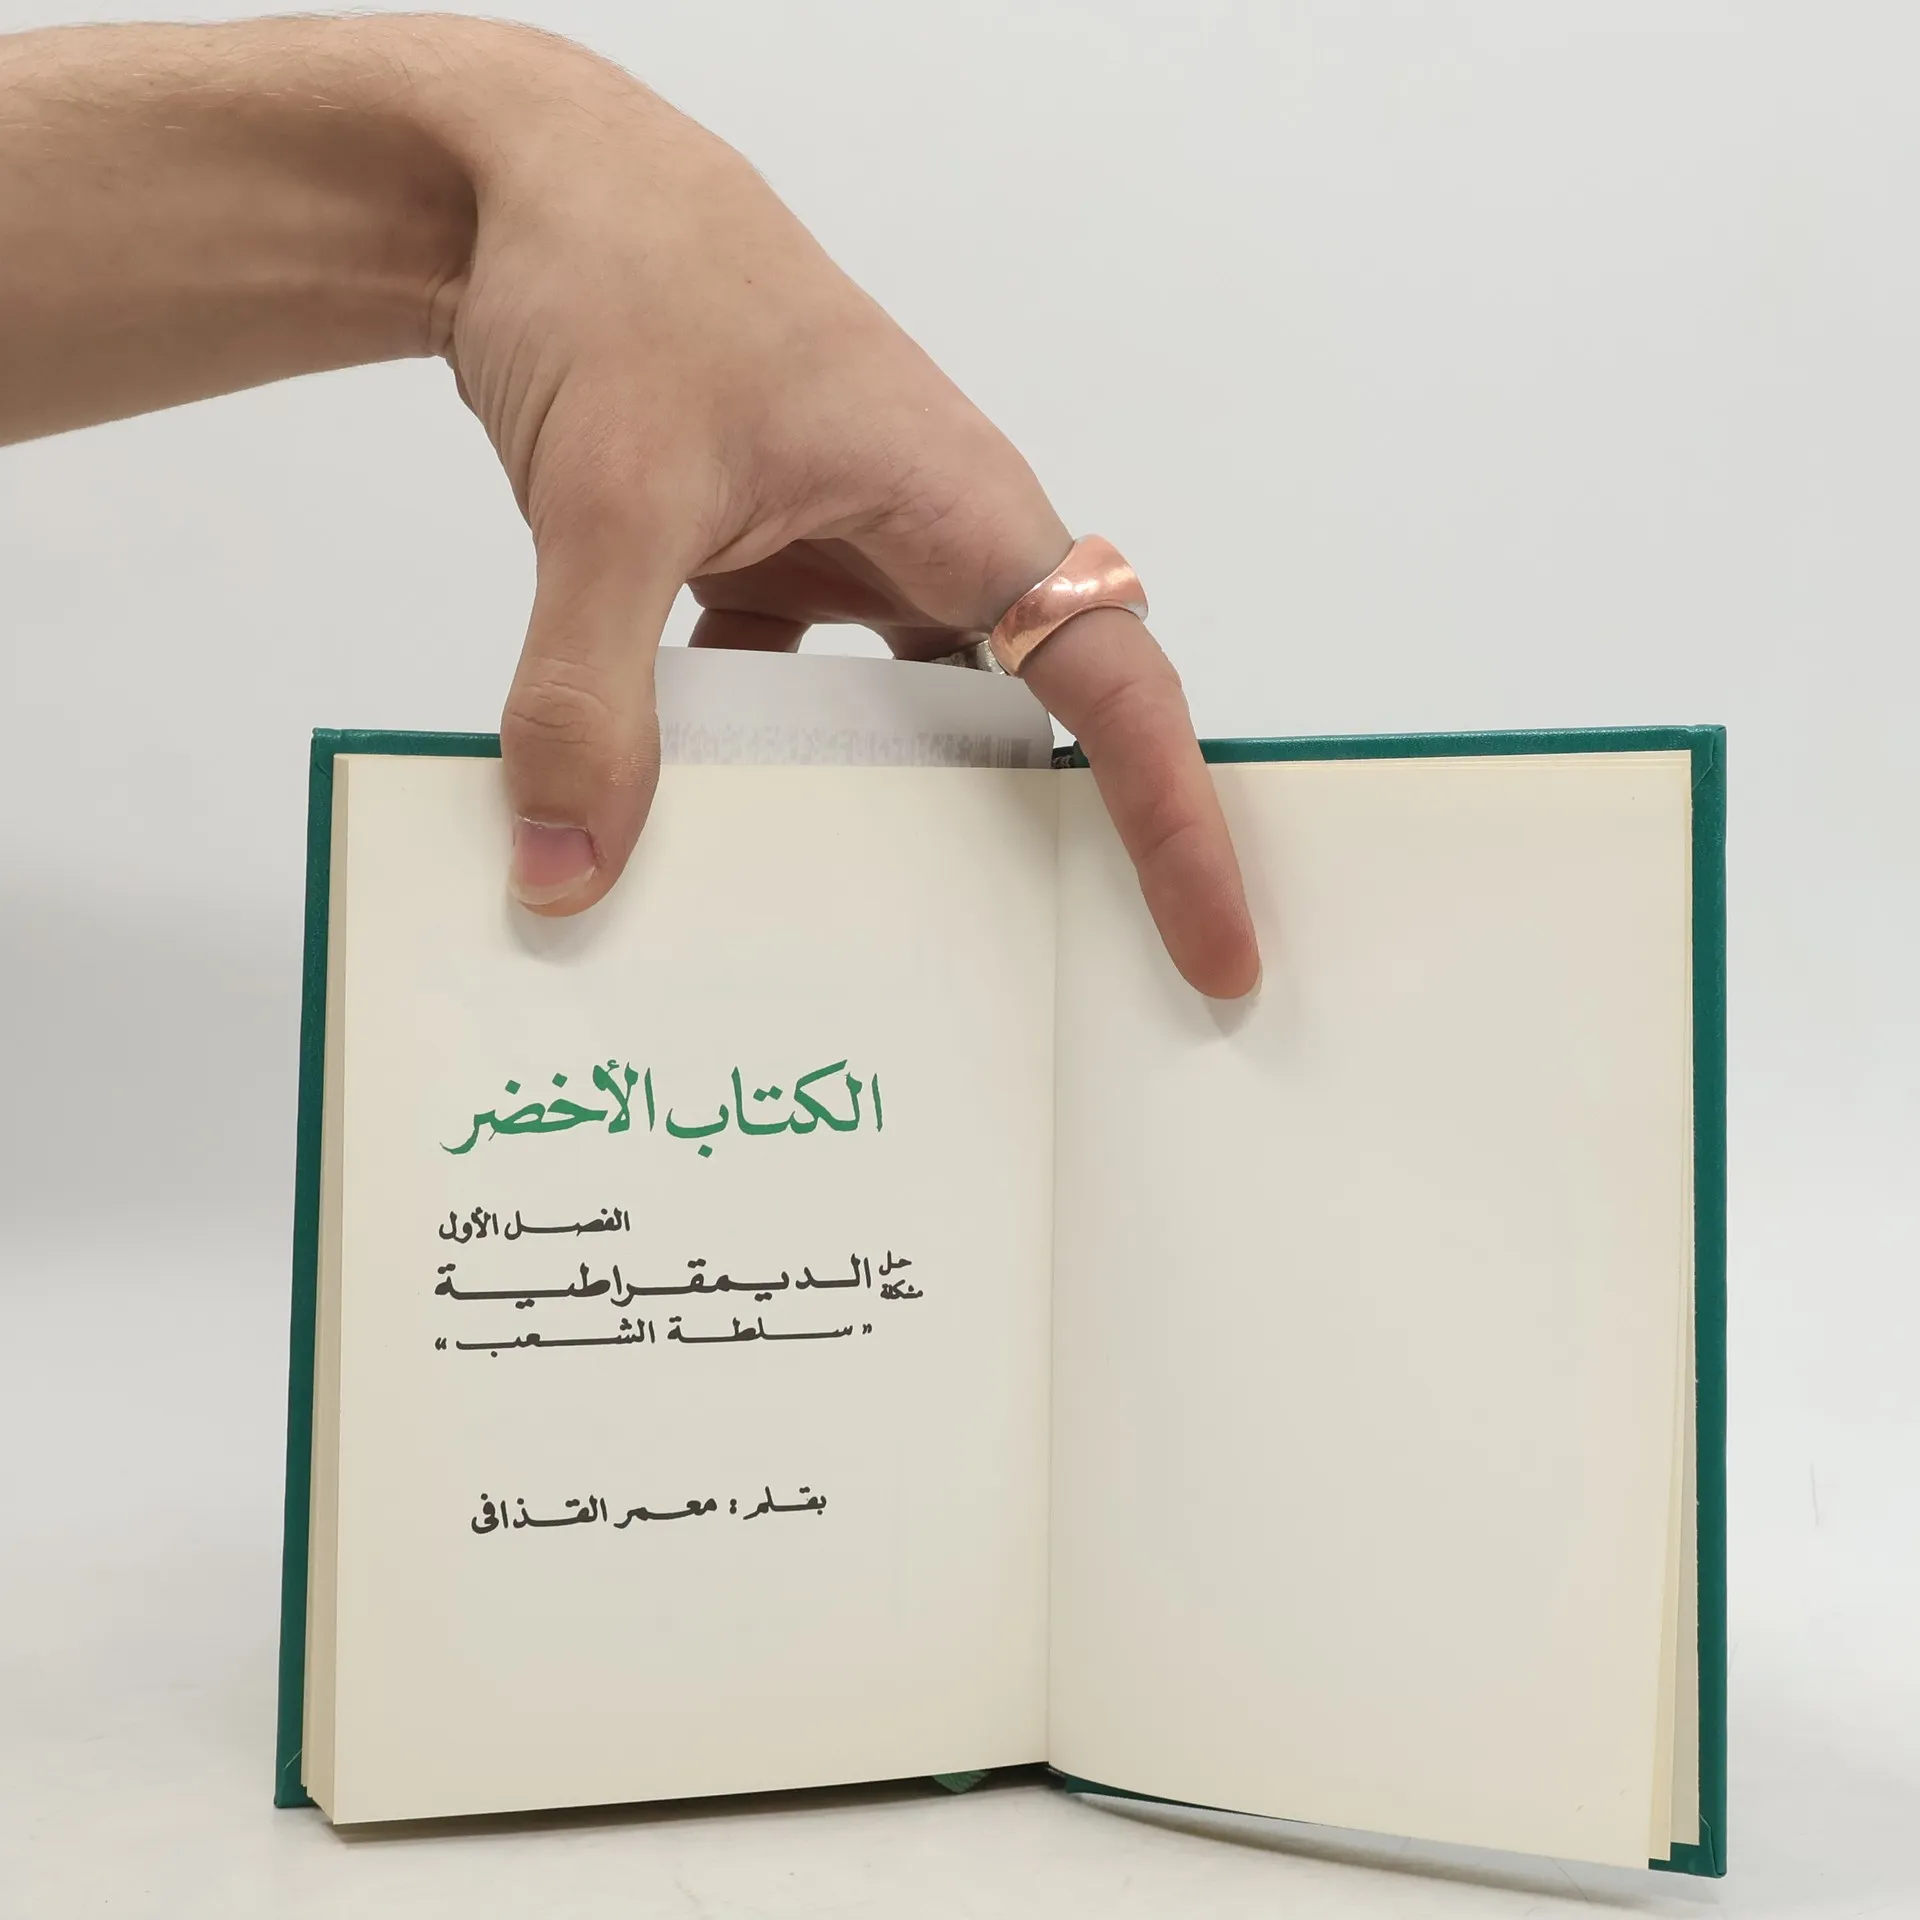 الكتاب الأخضر
الفصل الأول
حل مشكلة الديمقراطية
«سلطة الشعب»
بقلم : معمر القذافى